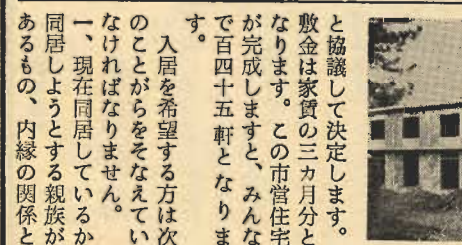 と協議して決定します。
敷金は家賃の三カ月分と
なります。この市営住宅
が完成しますと、みんな
で百四十五軒となりま
す。
入居を希望する方は次
のことがらをそなえてい
なければなりません。
一、現在同居しているか
同居しようとする親族が
あるもの、内縁の関係と